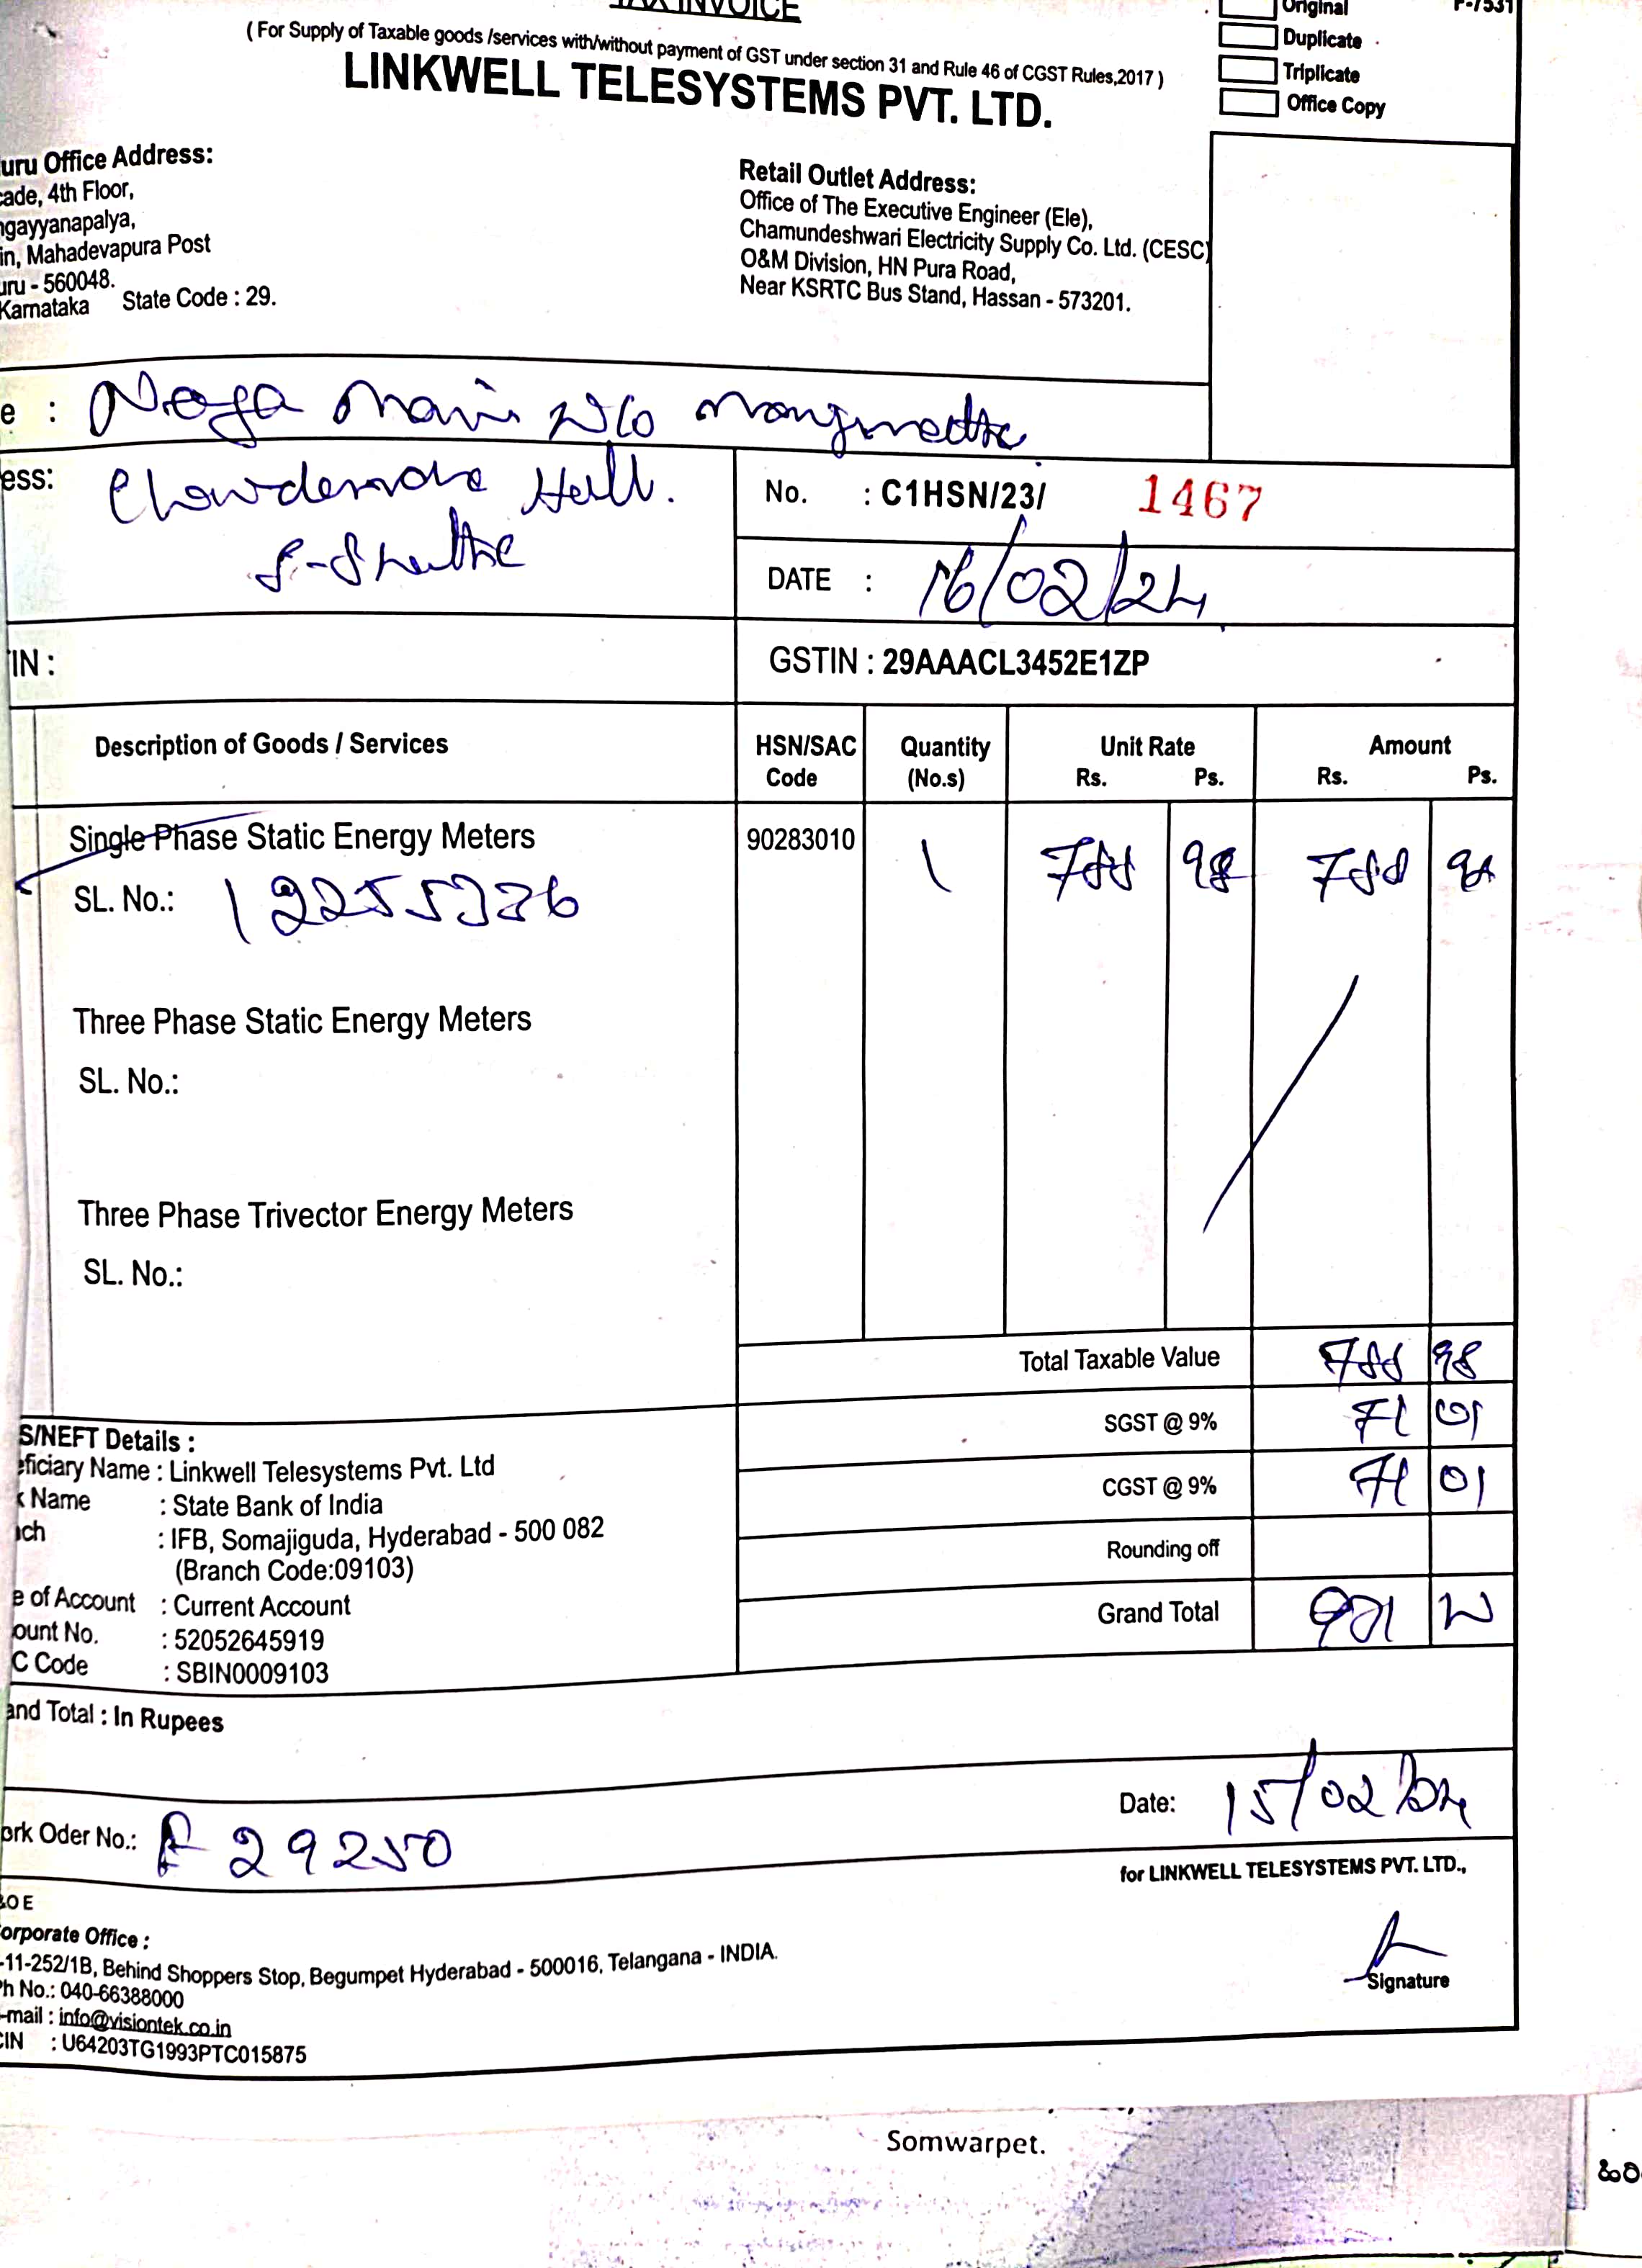 TAX INVOICE
( For Supply of Taxable goods /services with/without payment of GST under section 31 and Rule 46 of CGST Rules,2017 )
LINKWELL TELESYSTEMS PVT. LTD.
Original
Duplicate
Triplicate
Office Copy
uru Office Address:
cade, 4th Floor,
ngayyanapalya,
in, Mahadevapura Post
uru - 560048.
Karnataka State Code : 29.
Retail Outlet Address:
Office of The Executive Engineer (Ele),
Chamundeshwari Electricity Supply Co. Ltd. (CESC)
O&M Division, HN Pura Road,
Near KSRTC Bus Stand, Hassan - 573201.
e : Naga W/o
ess:
No. : C1HSN/23/ 1467
DATE : 16/02/24
IN :
GSTIN : 29AAACL3452E1ZP
Description of Goods / Services HSN/SAC Code Quantity (No.s) Unit Rate Rs. Ps. Amount Rs. Ps.
Single Phase Static Energy Meters 90283010 1 788 98 788 98
SL. No.:
Three Phase Static Energy Meters
SL. No.:
Three Phase Trivector Energy Meters
SL. No.:
Total Taxable Value 788 98
SGST @ 9% 71 01
CGST @ 9% 71 01
Rounding off
Grand Total 931
S/NEFT Details :
eficiary Name : Linkwell Telesystems Pvt. Ltd
k Name : State Bank of India
nch : IFB, Somajiguda, Hyderabad - 500 082
(Branch Code:09103)
e of Account : Current Account
ount No. : 52052645919
C Code : SBIN0009103
and Total : In Rupees
ork Oder No.: 29250
Date: 15/02/24
for LINKWELL TELESYSTEMS PVT. LTD.,
Signature
&OE
orporate Office :
-11-252/1B, Behind Shoppers Stop, Begumpet Hyderabad - 500016, Telangana - INDIA.
Ph No.: 040-66388000
-mail : info@visiontek.co.in
CIN : U64203TG1993PTC015875
Somwarpet.
ಹಿರಿ